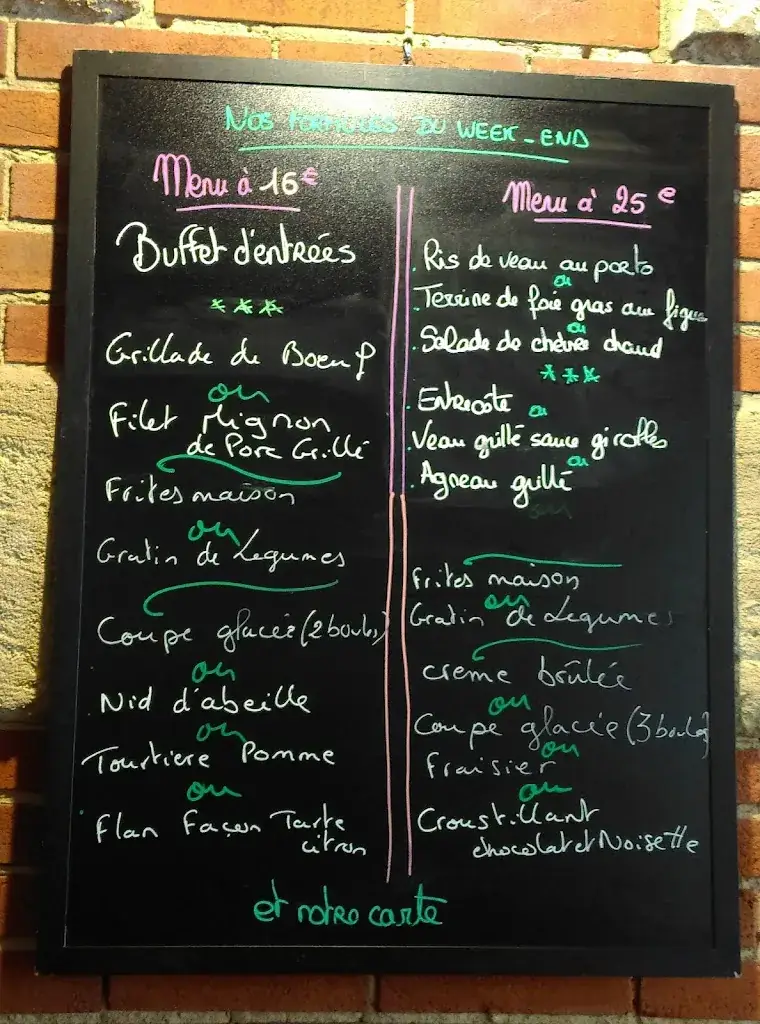 NOS FORMULES DU WEEK-END
Menu à 16€
Buffet d'entrées
***
Grillade de Boeuf
ou
Filet Mignon
de Porc Grillé
Frites maison
ou
Gratin de Legumes
Coupe glacée (2 boules)
ou
Nid d'abeille
ou
Tourtiere Pomme
ou
Flan Façon Tarte
citron
Menu à 25€
. Ris de veau au porto
ou
. Terrine de foie gras aux figues
ou
. Salade de chèvre chaud
***
. Entrecôte ou
. Veau grillé sauce girolles
ou
. Agneau grillé
Frites maison
ou
Gratin de Legumes
creme brûlée
ou
Coupe glacée (3 boules)
ou
Fraisier
ou
Croustillant
chocolat et Noisette
et notre carte